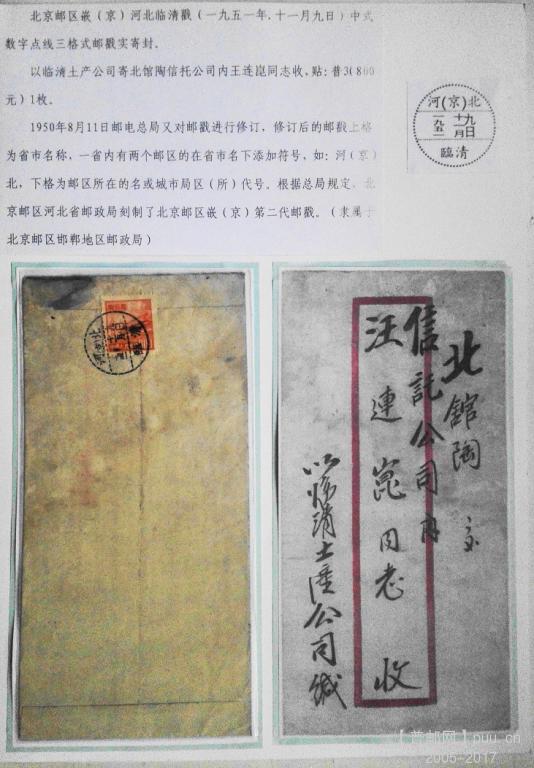 北京邮区嵌（京）河北临清戳（一九五一年.十一月九日）中式
数字点线三格式邮戳实寄封。
以临清土产公司寄北馆陶信托公司内王连崑同志收，贴：普3(800
元）1枚。
1950年8月11日邮电总局又对邮戳进行修订，修订后的邮戳上格
为省市名称，一省内有两个邮区的在省市名下添加符号，如：河（京）
北，下格为邮区所在的名或城市局区（所）代号。根据总局规定，北
京邮区河北省邮政局刻制了北京邮区嵌（京）第二代邮戳。（隶属于
北京邮区邯郸地区邮政局）
河(京)北
一九五一
十一月
九日
臨清
北館陶
信託公司内
汪連崑同志 收
以临清土產公司缄
【普邮网】puu.cn
2005-2017